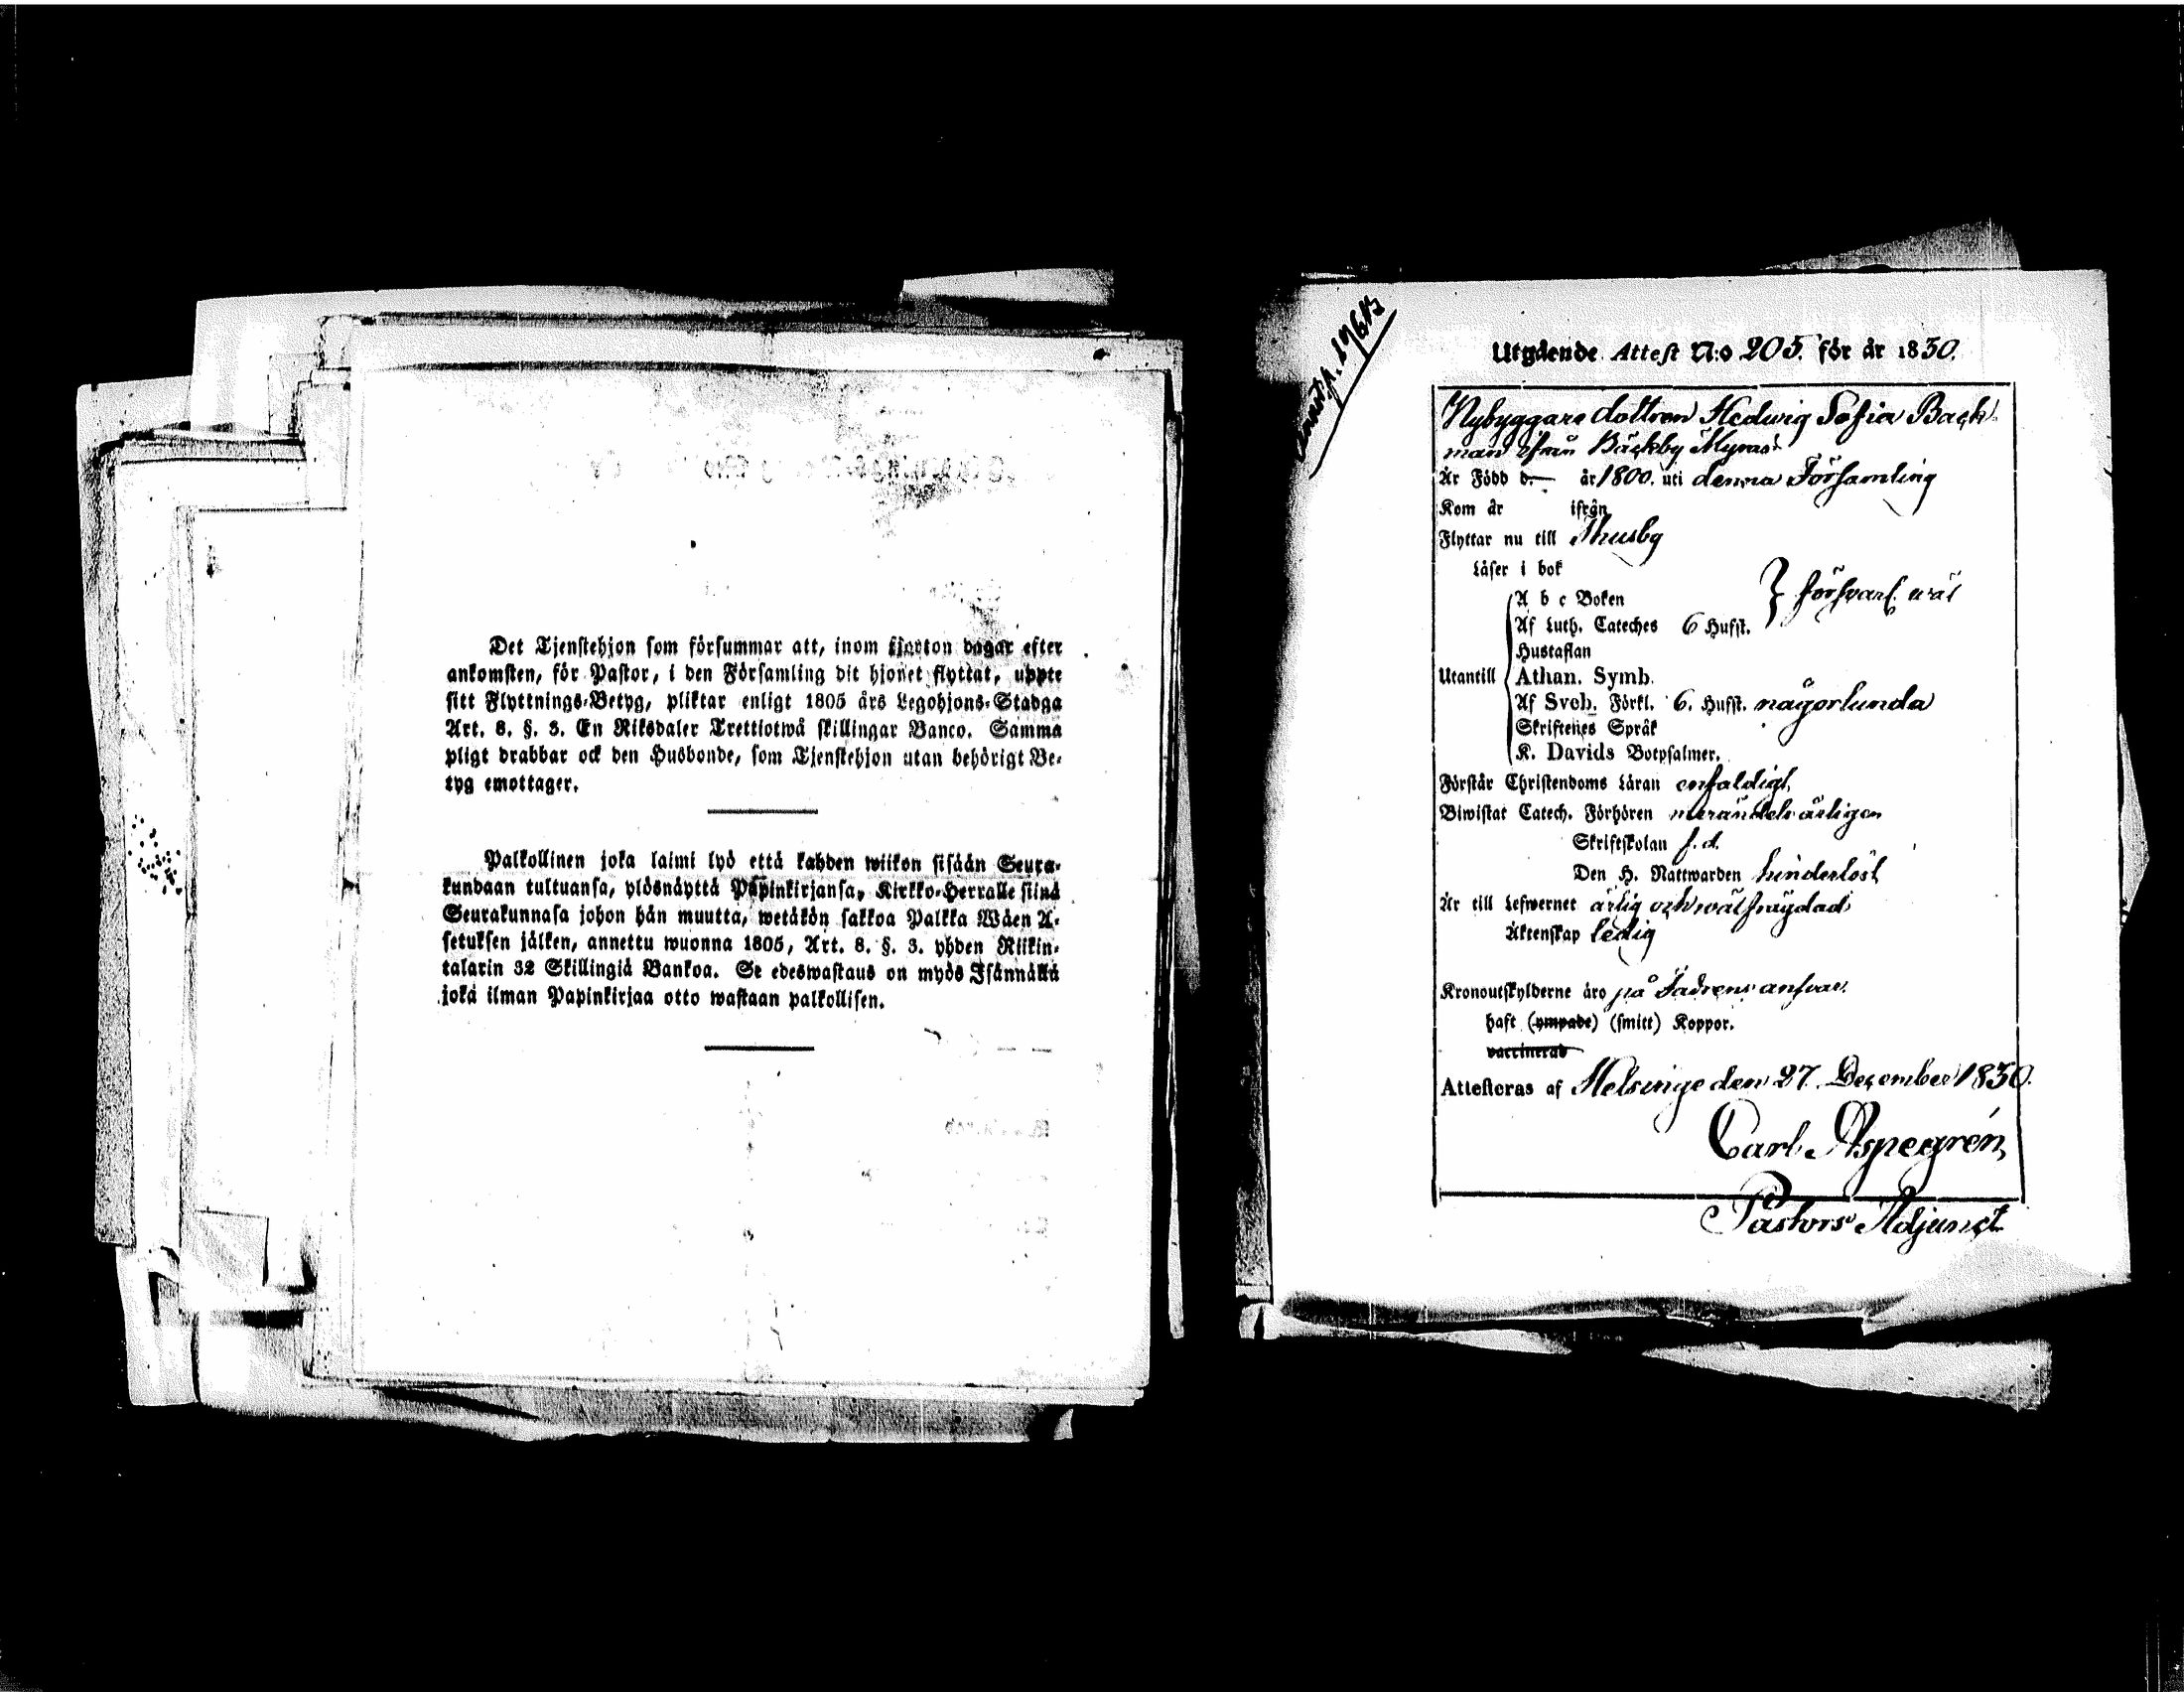 Det Tjenstehjon som försummar att, inom fjorton dagar efter
ankomsten, för Pastor, i den Församling dit hjonet flyttat, uppte
sitt Flyttnings-Betyg, pliktar enligt 1805 års Legohjons-Stadga
Art. 8. §. 3. En Riksdaler Trettiotwå skillingar Banco. Samma
pligt drabbar ock den Husbonde, som Tjenstehjon utan behörigt Be-
tyg emottager.
Palkollinen joka laimi lyö että kahden wiikon sisään Seura-
kundaan tultuansa, ylösnäyttä Papinkirjansa, Kirkko-Herralle siinä
Seurakunnasa johon hän muutta, wetäkön sakkoa Palkka Wäen A-
setuksen jälken, annettu wuonna 1805, Art. 8. §. 3. yhden Riikin-
talarin 32 Skillingiä Bankoa. Se edeswastaus on myös Isännällä
joka ilman Papinkirjaa otto wastaan palkollisen.
Utgående Attest N:o 205. för år 1830.
Nybyggare dottren Hedwig Sofia Back-
man ifrån Bäckby Myras
Är Född d. — år 1800. uti denna Församling
Kom år ifrån
Flyttar nu till Thusby
Läser i bok
A b c Boken } försvarl. wäl
Af Luth. Cateches 6 Hufst.
Hustaflan
Utantill Athan. Symb.
Af Sveb. Förkl. 6. Hufst. någorlunda
Skriftenes Språk
K. Davids Botpsalmer.
Förstår Christendoms Läran enfaldigt
Biwistat Catech. Förhören merändels årligen
Skriftskolan f. d.
Den H. Nattwarden hinderlöst
Är till Lefwernet ärlig och wälfrägdad
Äktenskap ledig
Kronoutskylderne äro på Fadrens ansvar.
haft (ympade) (smitt) Koppor.
vaccinerad
Attesteras af Helsinge den 27. December 1830.
Carl Aspegrén
Pastors Adjunct